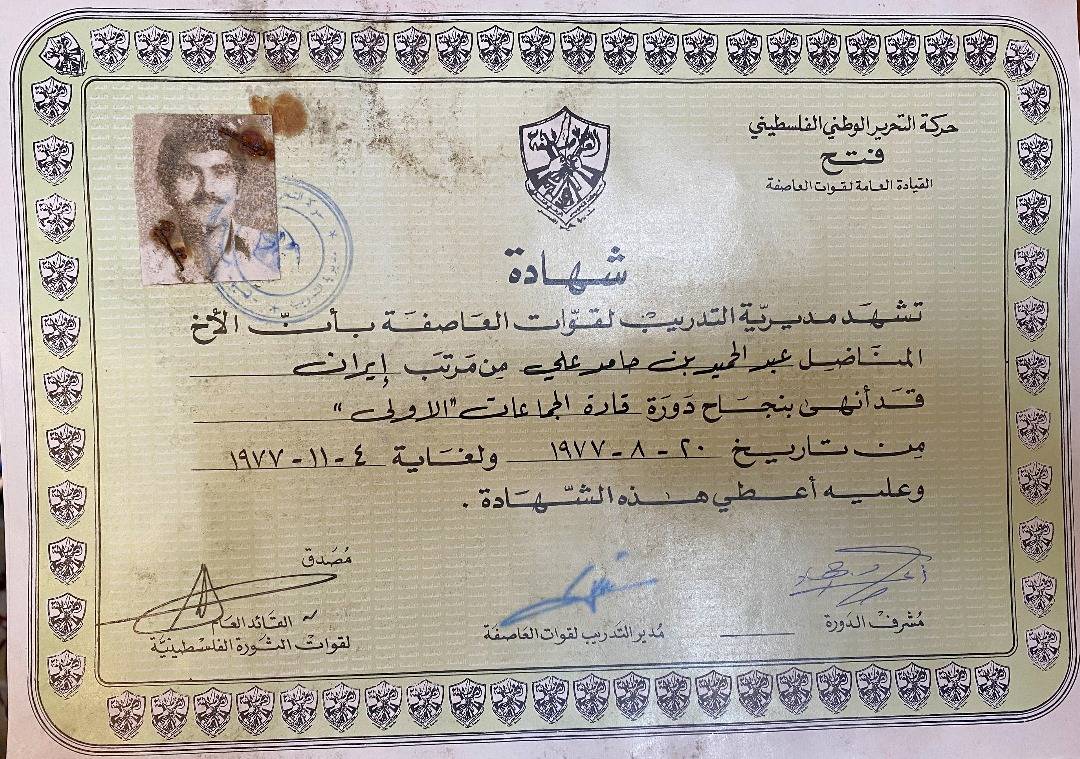 حركة التحرير الوطني الفلسطيني
فتح
القيادة العامة لقوات العاصفة
العاصفة
شهادة
تشهد مديريّة التدريب لقوّات العاصفة بأنّ الأخ
المناضل عبد الحميد بن حامد علي من مرتب إيران
قد أنهى بنجاح دورة قادة الجماعات "الاولى"
من تاريخ ٢٠ - ٨ - ١٩٧٧ ولغاية ٤ - ١١ - ١٩٧٧
وعليه أعطي هذه الشّهادة .
مُشرف الدورة
مُدير التدريب لقوات العاصفة
مُصَدق
القائد العام
لقوات الثورة الفلسطينيّة